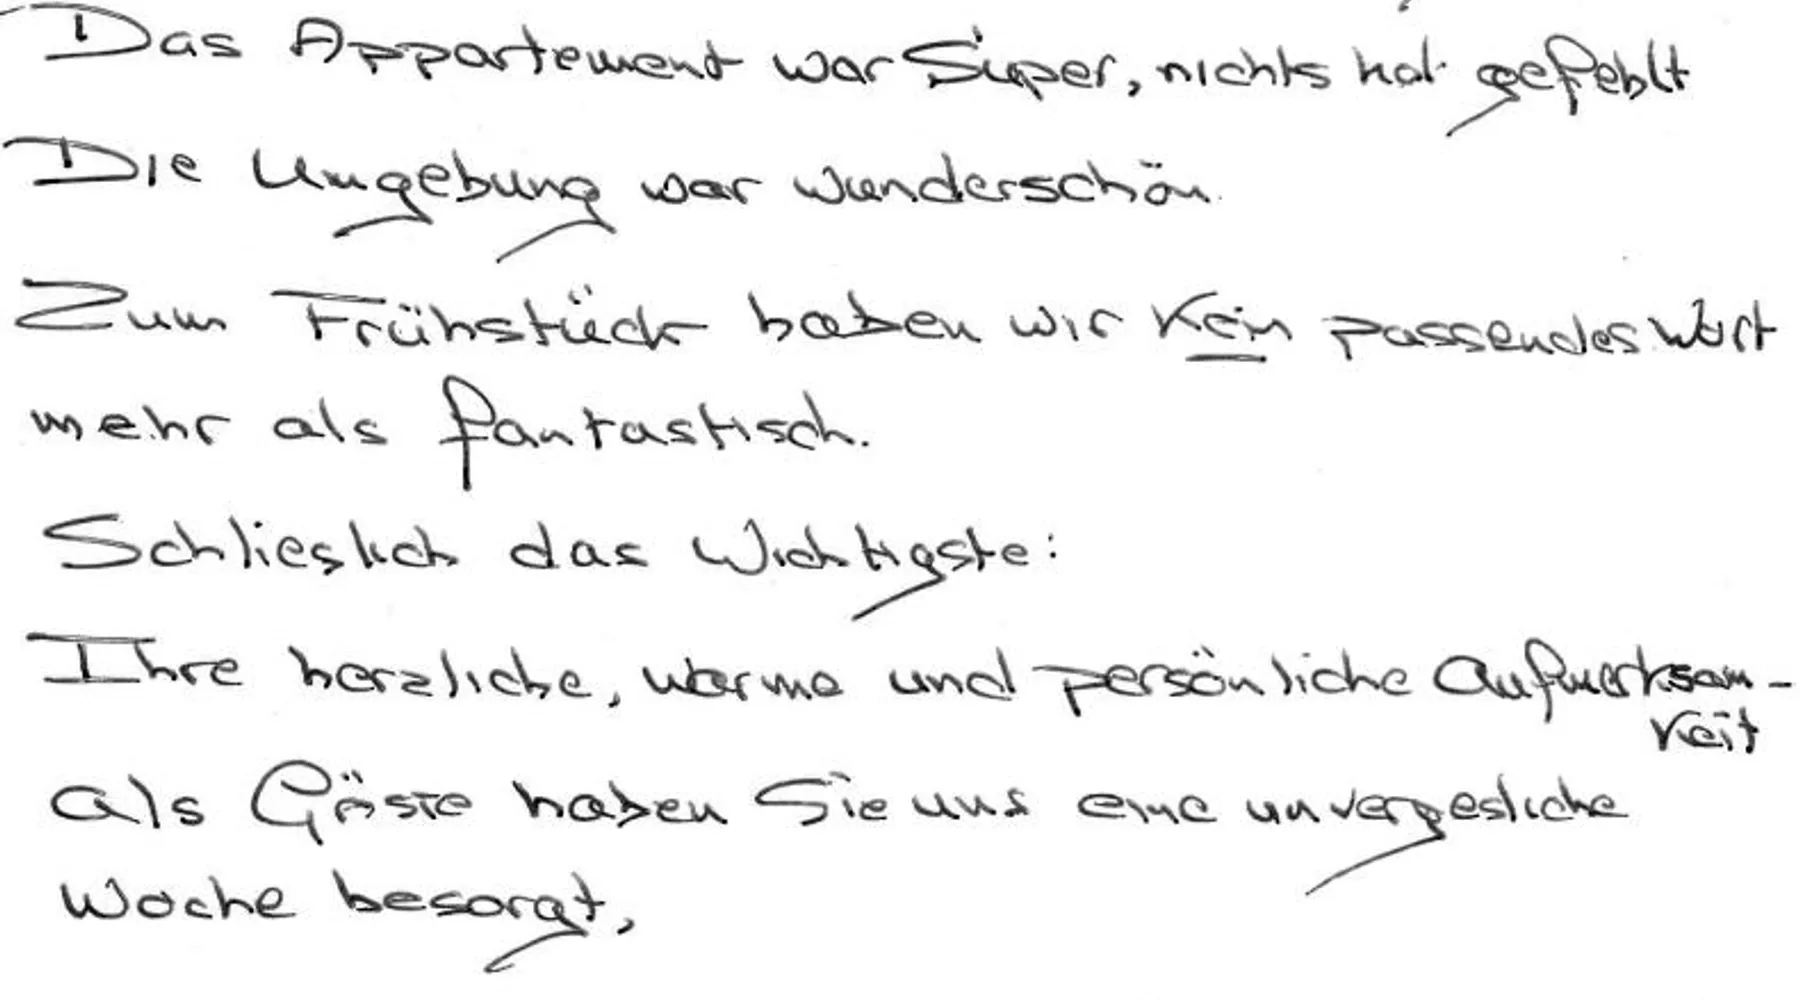 Das Appartement war Super, nichts hat gefehlt
Die Umgebung war wunderschön.
Zum Frühstück haben wir kein passendes Wort
mehr als fantastisch.
Schlieslich das Wichtigste:
Ihre herzliche, warme und persönliche Aufmerksam-
keit
als Gäste haben Sie uns eine unvergesliche
Woche besorgt,